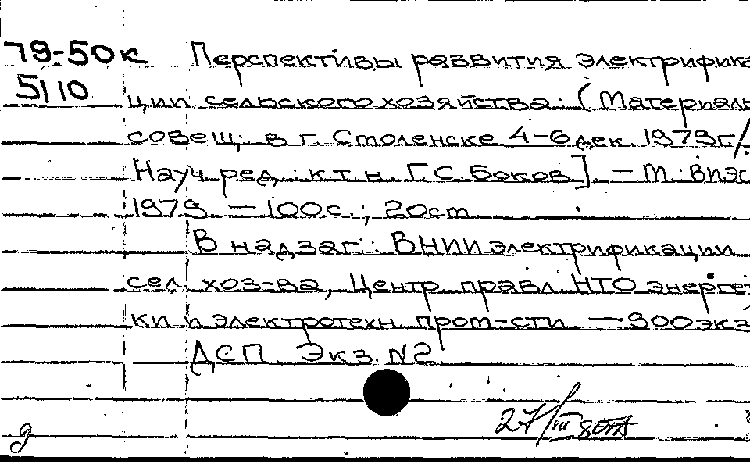 79-50к Перспективы развития электрифика
5110 ции сельского хозяйства. (Материалы
совещ. в г. Смоленске 4-6 дек. 1979г/
Науч. ред. к.т.н. Г.С. Боков]. – М.: ВИЭС
1979. – 100с.; 20см
В надзаг.: ВНИИ электрификации
сел. хоз-ва, Центр. правл. НТО энерге
ки и электротехн. пром-сти. – 300экз
ДСП Экз. N2
27/III